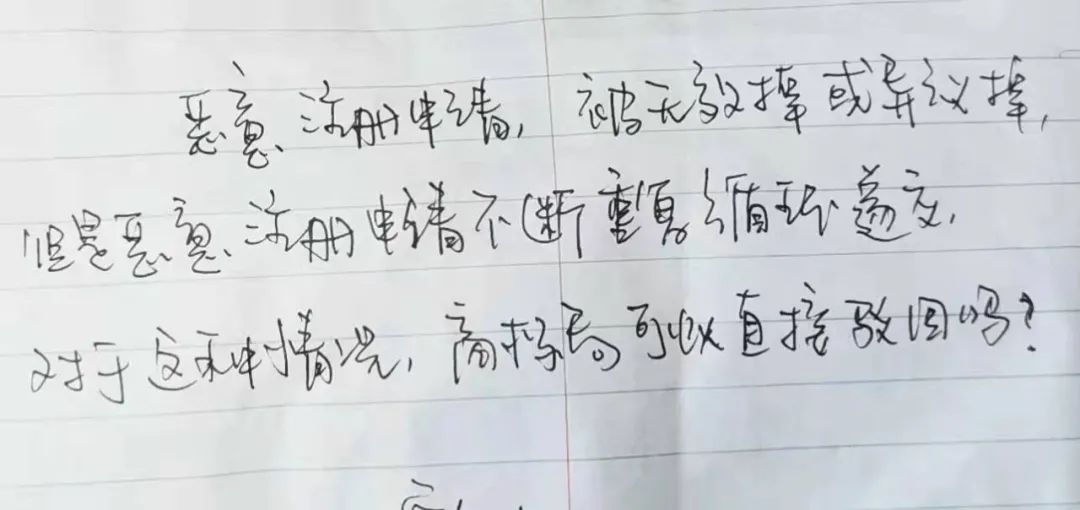 恶意注册申请，被无效掉或异议掉，
但是恶意注册申请不断重复循环递交，
对于这种情况，商标局可以直接驳回吗？